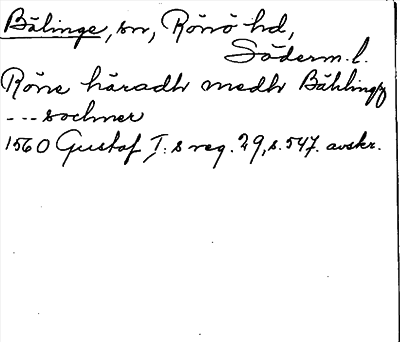 Bälinge, sn, Rönö hd,
Söderm. l.
Röne häradh medh Bählingh
--- sochner
1560 Gustaf I:s reg. 29, s. 547. avskr.